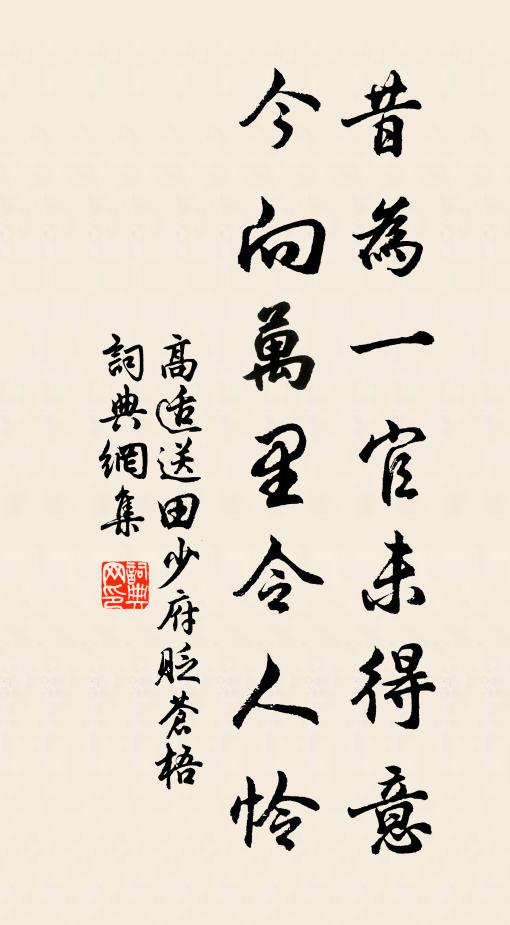 昔為一官未得意
今向萬里令人怜
高适送田少府貶蒼梧
詞典網集
詞典网印